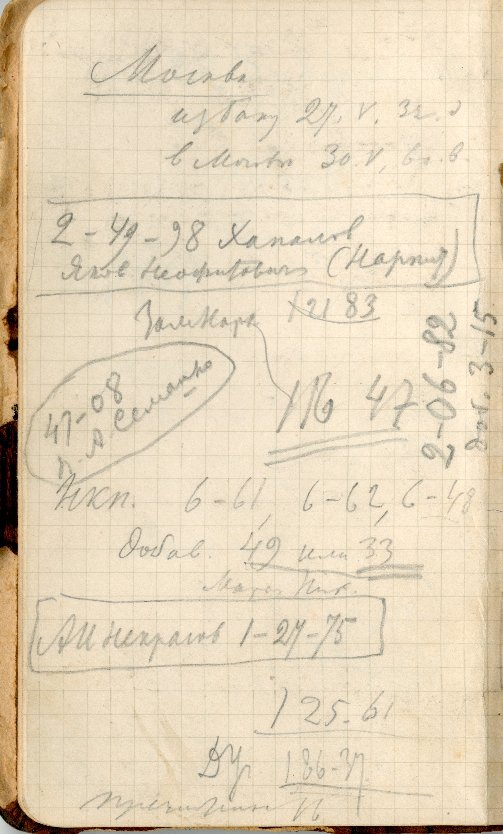 Москва
из Баку 27. V. 32. г
в Москве 30. V, в 6. в.
2-49-98 Хапалов
Яков Неофитович (Нарпит)
ЗамНарк 121 83
116 47
47-08
Семашко
2-06-82
доб. 3-15
НКП. 6-61, 6-62, 6-48
добав. 49 или 33
АИ Некрасов 1-27-75
1 25-61
1.86-37